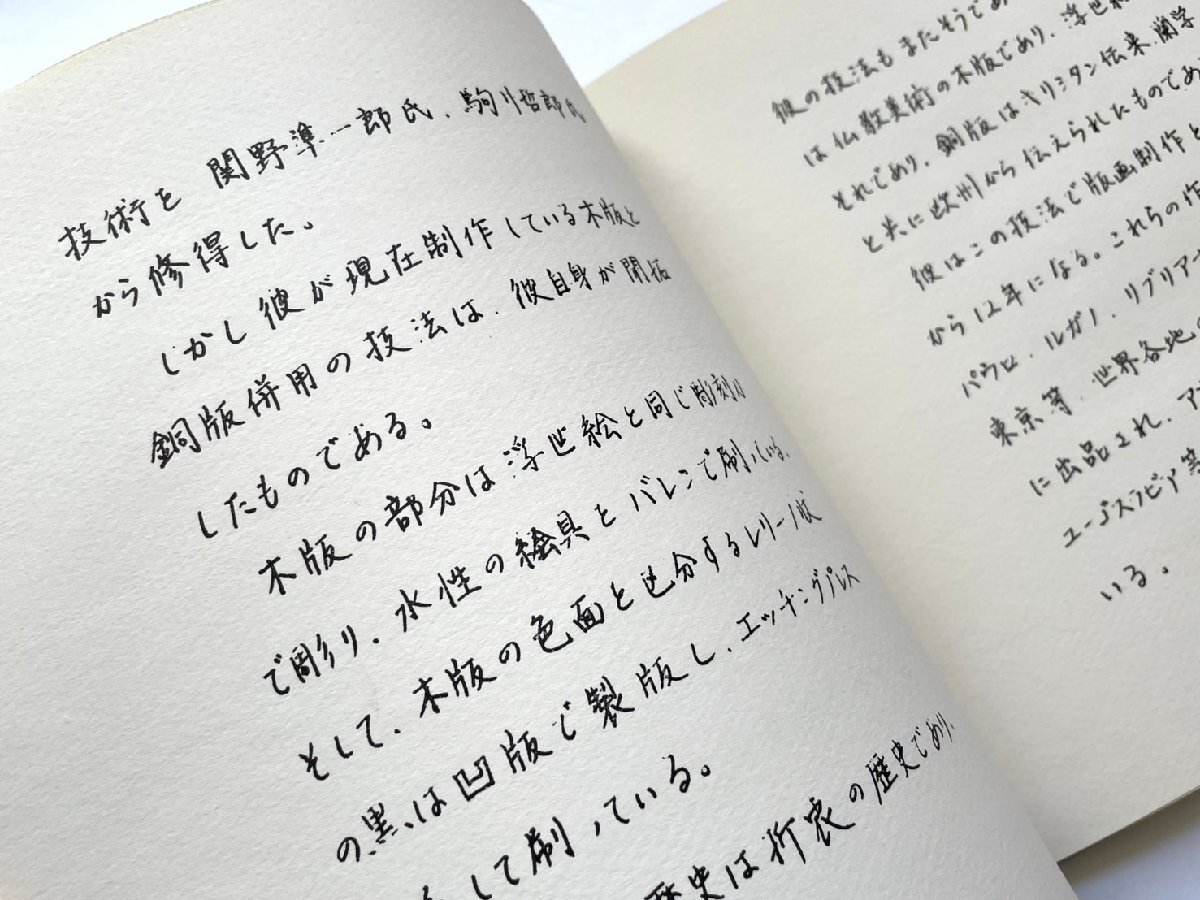 技術を 関野準一郎氏、駒井哲郎氏
から修得した。
しかし彼が現在制作している木版と
銅版併用の技法は、彼自身が開拓
したものである。
木版の部分は浮世絵と同じ彫刻刀
で彫り、水性の絵具とバレンで刷っている。
そして、木版の色面と区分するレリーフ状
の黒は凹版で製版し、エッチングプレス
して刷っている。
歴史は折衷の歴史であり、
彼の技法もまたそうであ
は仏教美術の木版であり、浮世絵
それであり、銅版はキリシタン伝来、蘭学
と共に欧州から伝えられたものであ
彼はこの技法で版画制作
から12年になる。これらの作
パウロ、ルガノ、リブリアー
東京等、世界各地の
に出品され、ア
ユーゴスラビア等
いる。